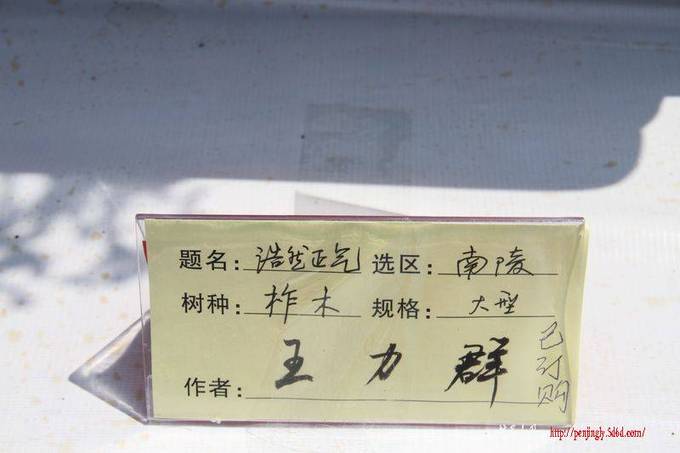 题名:浩然正气 选区:南陵
树种:柞木 规格:大型
作者:王力群
已订购
http://penjingly.5d6d.com/